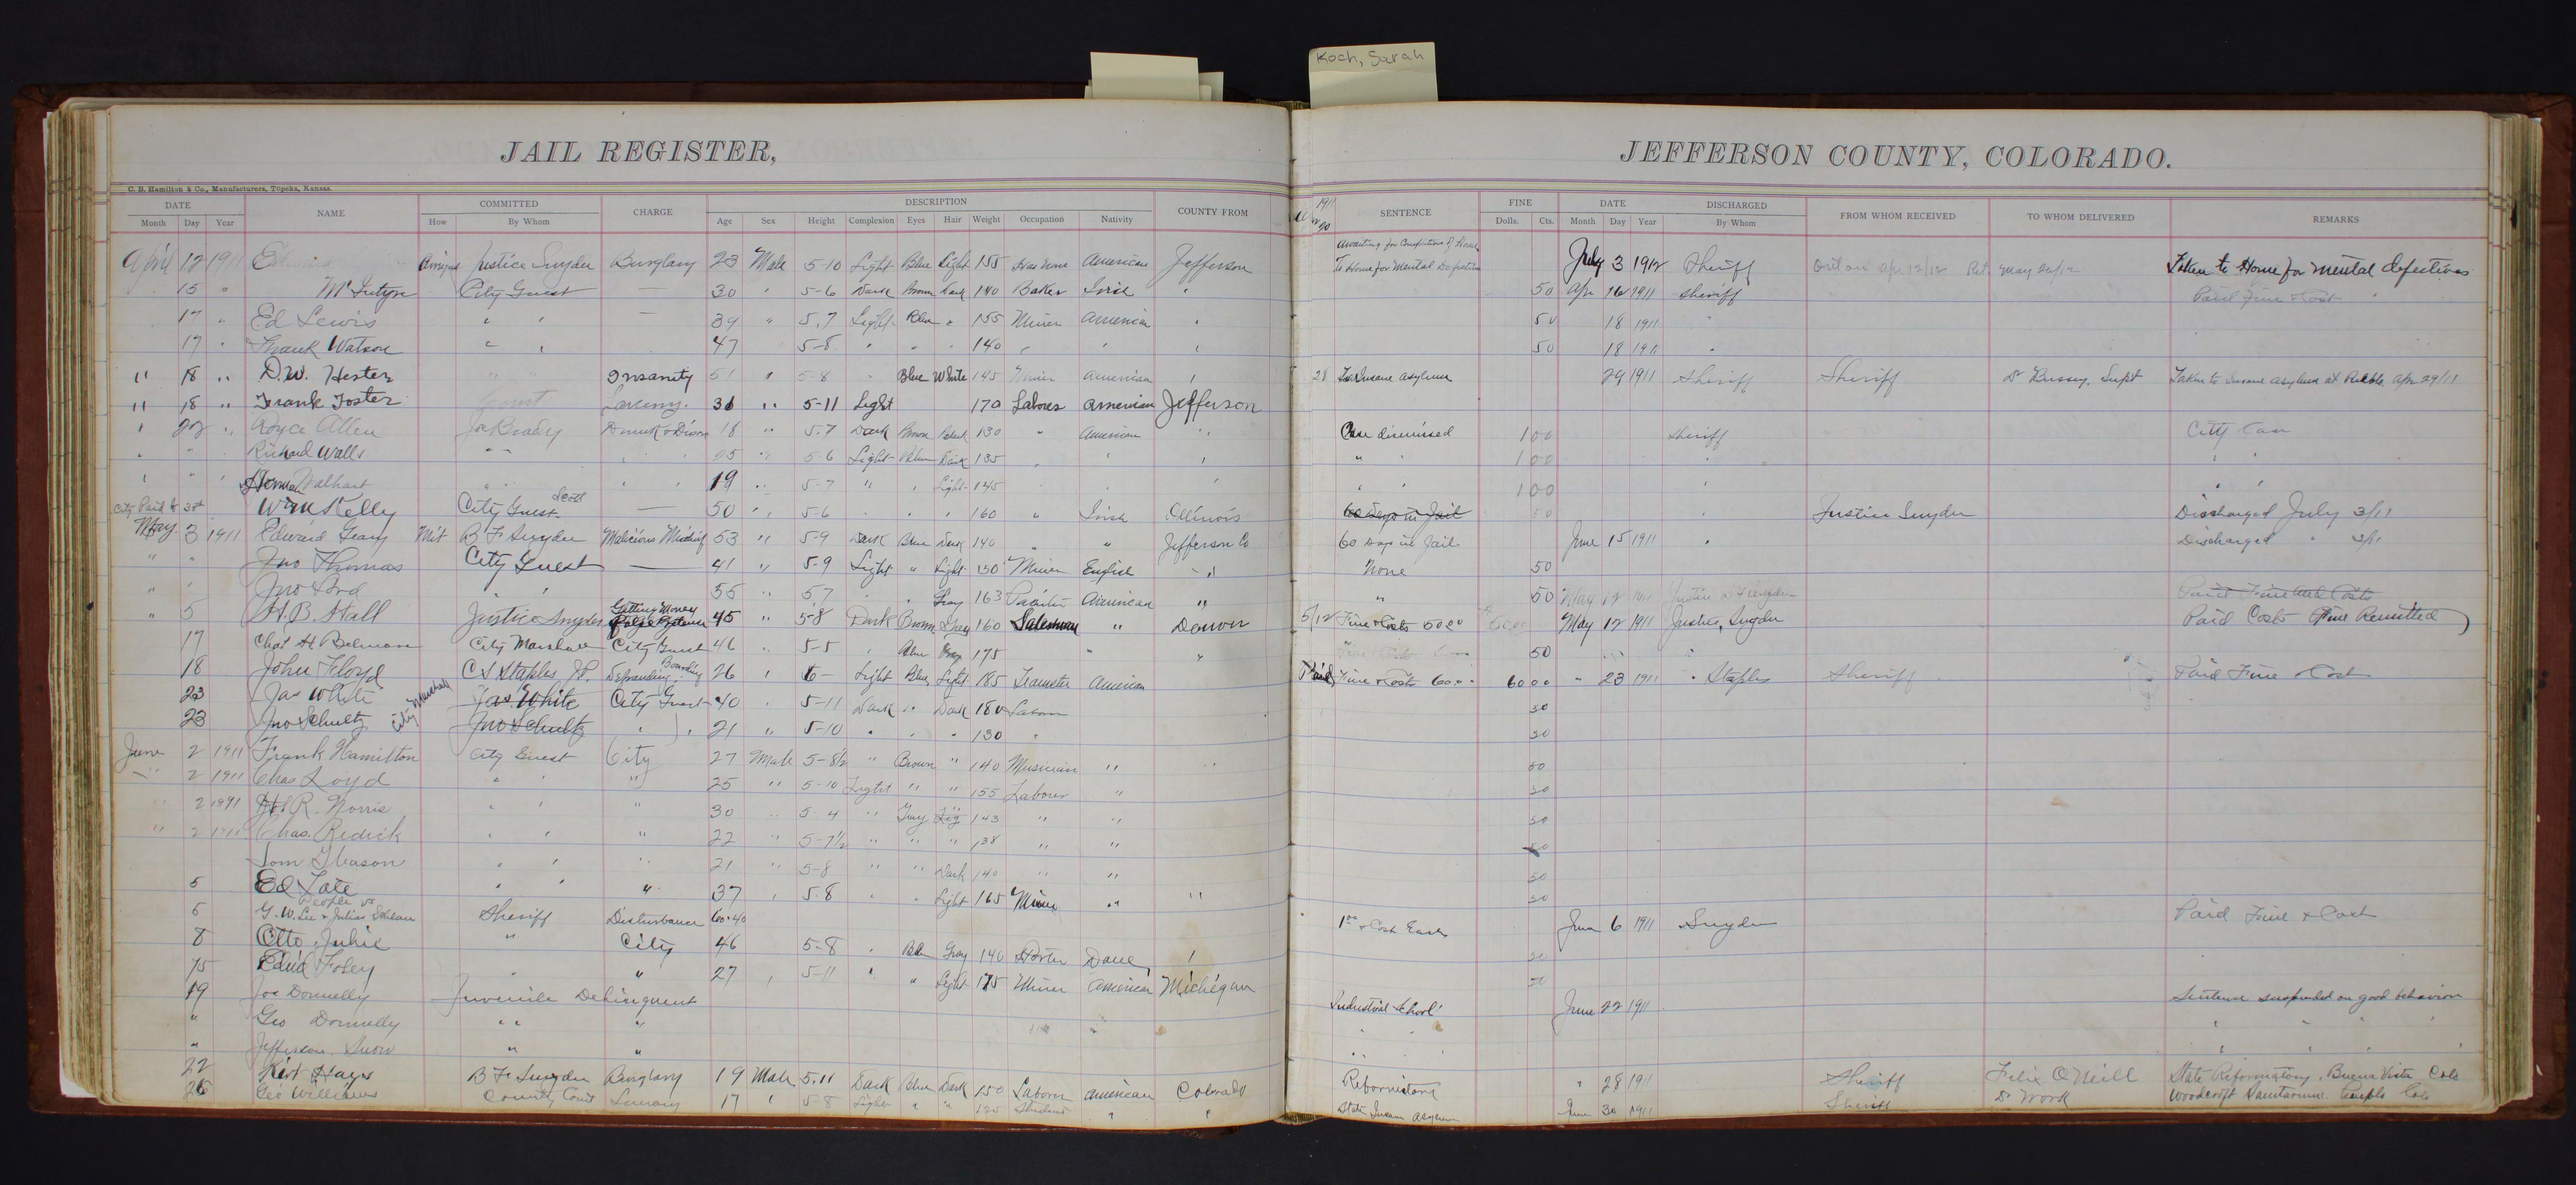 Koch, Sarah
JAIL REGISTER,
JEFFERSON COUNTY, COLORADO.
C. B. Hamilton & Co., Manufacturers, Topeka, Kansas.
DATE NAME COMMITTED CHARGE DESCRIPTION COUNTY FROM 1911 SENTENCE FINE DATE DISCHARGED FROM WHOM RECEIVED TO WHOM DELIVERED REMARKS
Month Day Year How By Whom Age Sex Height Complexion Eyes Hair Weight Occupation Nativity Dolls. Cts. Month Day Year By Whom
April 12 1911 Justice Snyder Burglary 23 Male 5-10 Light Blue Light 155 Has None American Jefferson To Home for Mental Defectives July 3 1912 Sheriff Taken to Home for mental defectives
15 " McIntyre City Guest — 30 " 5-6 Dark Brown Dark 140 Baker Irish " 50 Apr 16 1911 Sheriff Paid Fine & Cost
17 " Ed Lewis " " — 39 " 5.7 Light Blue " 155 Miner American " 50 18 1911 "
17 " Frank Watson " " 47 5-8 " " " 140 " " " 50 18 1911 "
" 18 " D.W. Hester " " Insanity 51 " 5-8 Blue White 145 Miner American " 28 To Insane Asylum 29 1911 Sheriff Sheriff Dr Bussey, Supt Taken to Insane Asylum at Pueblo Apr 29/11
" 18 " Frank Foster Court Larceny. 31 " 5-11 Light 170 Laborer American Jefferson
" 22 " Royce Allen Joe Brady Drunk & Disor 18 " 5.7 Dark Brown Black 130 " American " Case dismissed 100 Sheriff City Case
" " Richard Walls " " " " 25 " 5-6 Light Blue Dark 135 " " " " " 100 " " "
" " " " " 19 " 5-7 " " Light 145 " " 100 " " "
City Paid to 30th Wm Kelly City Guest Scott — 50 " 5-6 " " " 160 " Irish Illinois 60 Days in Jail 50 " Justice Snyder Discharged July 3/11
May 3 1911 Edward Geary Mit B F Snyder Malicious Mischief 53 " 5-9 Dark Blue Dark 140 " " Jefferson Co 60 Days in Jail June 15 1911 " Discharged " 3/11
" " Jno Thomas City Guest — 41 " 5-9 Light " Light 150 Miner English " None 50
" " Jno Ford " " 55 " 5 7 " " Gray 163 Painter American " " 50 May 12 1911 Paid Fine and Costs
" 5 H.B. Hall Justice Snyder Getting Money False Pretense 45 " 5-8 Dark Brown Gray 160 Salesman " Denver 5/12 Fine & Costs 50.00 50 00 May 12 1911 Justice, Snyder Paid Costs (Fine Remitted)
17 Chas H City Marshall City Guest 46 " 5-5 " Blue Gray 175 " " 50
18 John Floyd C S Staples J.P. Defrauding Boarding 26 " 6- Light Blue Light 185 Teamster American Paid Fine & Costs 60.00 60 00 " 23 1911 " Staples Sheriff Paid Fine & Cost
23 Jas White City Marshall Jas. White City Guest 40 " 5-11 Dark " Dark 180 Labor 50
23 Jno Schultz Jno Schultz " " 21 " 5-10 " " " 130 " 50
June 2 1911 Frank Hamilton City Guest City 27 Male 5-8½ " Brown " 140 Musician " " 50
" 2 1911 Chas Loyd " " " 25 " 5-10 Light " " 155 Laborer " 50
" 2 1991 R. Norris " " " 30 " 5-4 " Gray Lig 143 " " 50
" 2 1911 Chas. Redick " " " 22 " 5-7½ " " " 138 " " 50
Tom Gleason " " " 21 " 5-8 " " Dark 140 " " 50
5 Ed Tate " " " 37 " 5.8 " " Light 165 Miner " " 50
People vs
6 G.W. Lee & Julius Sheriff Disturbance 60.40 1.00 & Cost Each June 6 1911 Snyder Paid Fine & Cost
8 Otto Juhie " City 46 5-8 " Blue Gray 140 Dane " 50
15 Foley " " 27 " 5-11 " " Light 175 Miner American Michigan 50
19 Joe Donnelly Juvenile Delinquent Industrial School June 22 1911 Sentence suspended on good behavior
" Geo Donnelly " " " " " " " "
" Jefferson Snow " " " " " " " "
22 Kirt Hayes B F Snyder Burglary 19 Male 5.11 Dark Blue Dark 150 Laborer American Colorado Reformatory " 28 1911 Sheriff Felix O'Neill State Reformatory, Buena Vista Colo
26 Geo Williams County Court Lunacy 17 " 5-8 Light " " 125 Student " " State Insane Asylum June 30 1911 Sheriff Dr Work Woodcroft Sanitarium Pueblo Colo